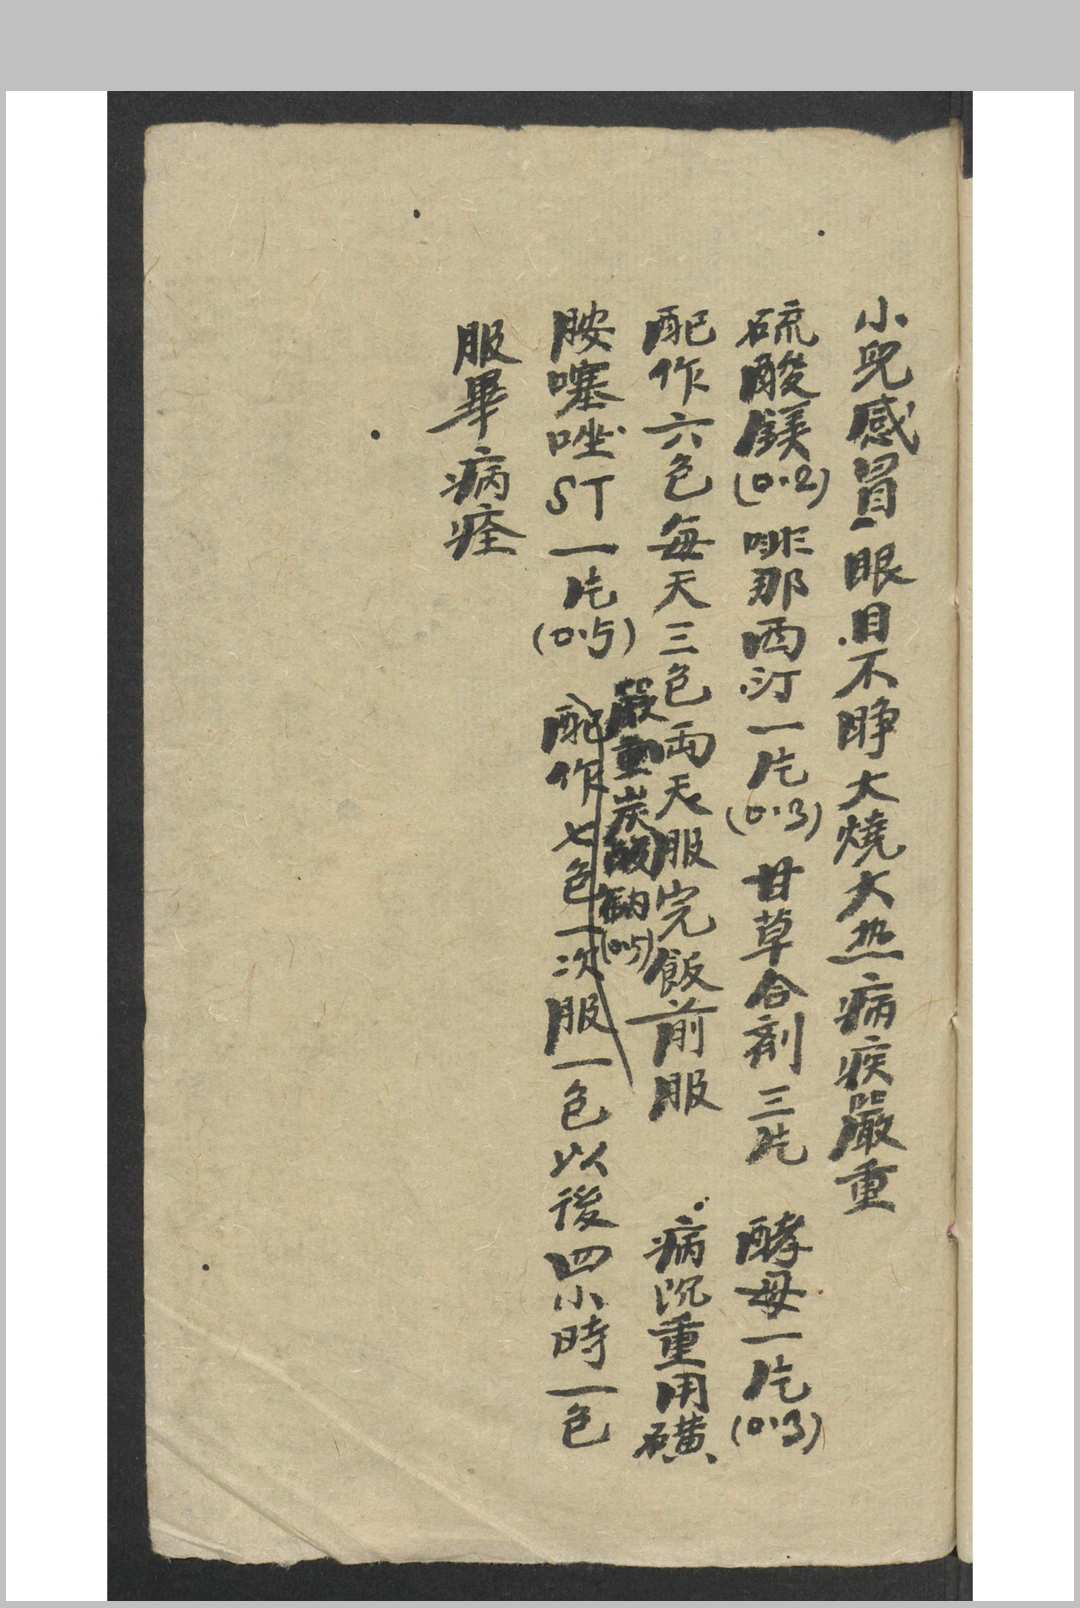 小兒感冒眼目不睁大燒大热病疾嚴重
硫酸鎂(0.2)啡那西汀一片(0.3)甘草合剤三片 酵母一片(0.3)
配作六色每天三色両天服完飯前服 病沉重用磺
嚴重炭酸鈉(0.5)
胺噻唑ST一片(0.5) 配作七色一次服一色以後四小時一色
服畢病痊